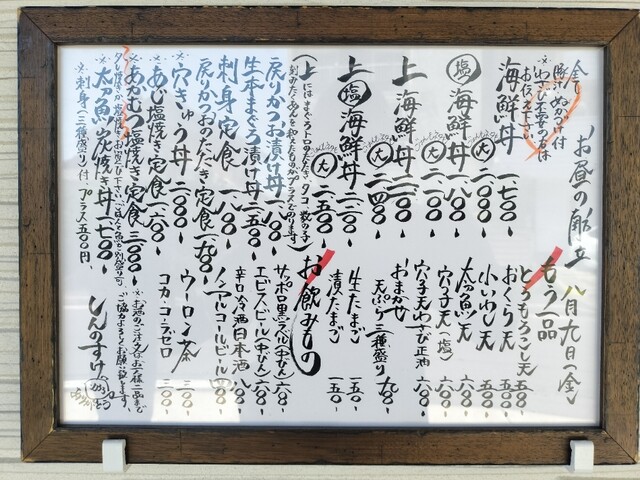 お昼の献立 八月九日(金)
全て豚汁、ぬか漬け付
※わさび不要の方は
お伝え下さい
海鮮丼 一七〇〇
大 二〇〇〇
塩 海鮮丼 一八〇〇
大 二一〇〇
上 海鮮丼 二一〇〇
大 二四〇〇
上 塩 海鮮丼 二二〇〇
大 二五〇〇
(上にはまぐろトロのたたき、タコ、数の子
戻りかつお漬け丼 一八〇〇
生本まぐろ漬け丼 一五〇〇
刺身定食 一八〇〇
戻りかつおのたたき定食 一九〇〇
穴きゅう丼 二〇〇〇
※あじ塩焼き定食 一六〇〇
※あかむつ塩焼き定食 三〇〇〇
※太刀魚塩焼き丼 一七〇〇
※刺身(三種盛り)付、プラス五〇〇円
もう一品
とうもろこし天 五五〇
おくら天 五〇〇
小いわし天 五〇〇
太刀魚天 六〇〇
穴子天(塩) 六〇〇
穴子天わさび正油 六〇〇
おまかせ
天ぷら三種盛り 九〇〇
生たまご 一五〇
漬けたまご 一五〇
お飲みもの
サッポロ黒ラベル(中びん) 六〇〇
エビスビール(中びん) 六〇〇
辛口冷酒日本酒 八〇〇
ノンアルコールビール 四〇〇
ウーロン茶 三〇〇
コカ・コーラゼロ 三〇〇
※お酒のご注文はお一人様二品まで
ご協力よろしくお願い致します
しんのすけ